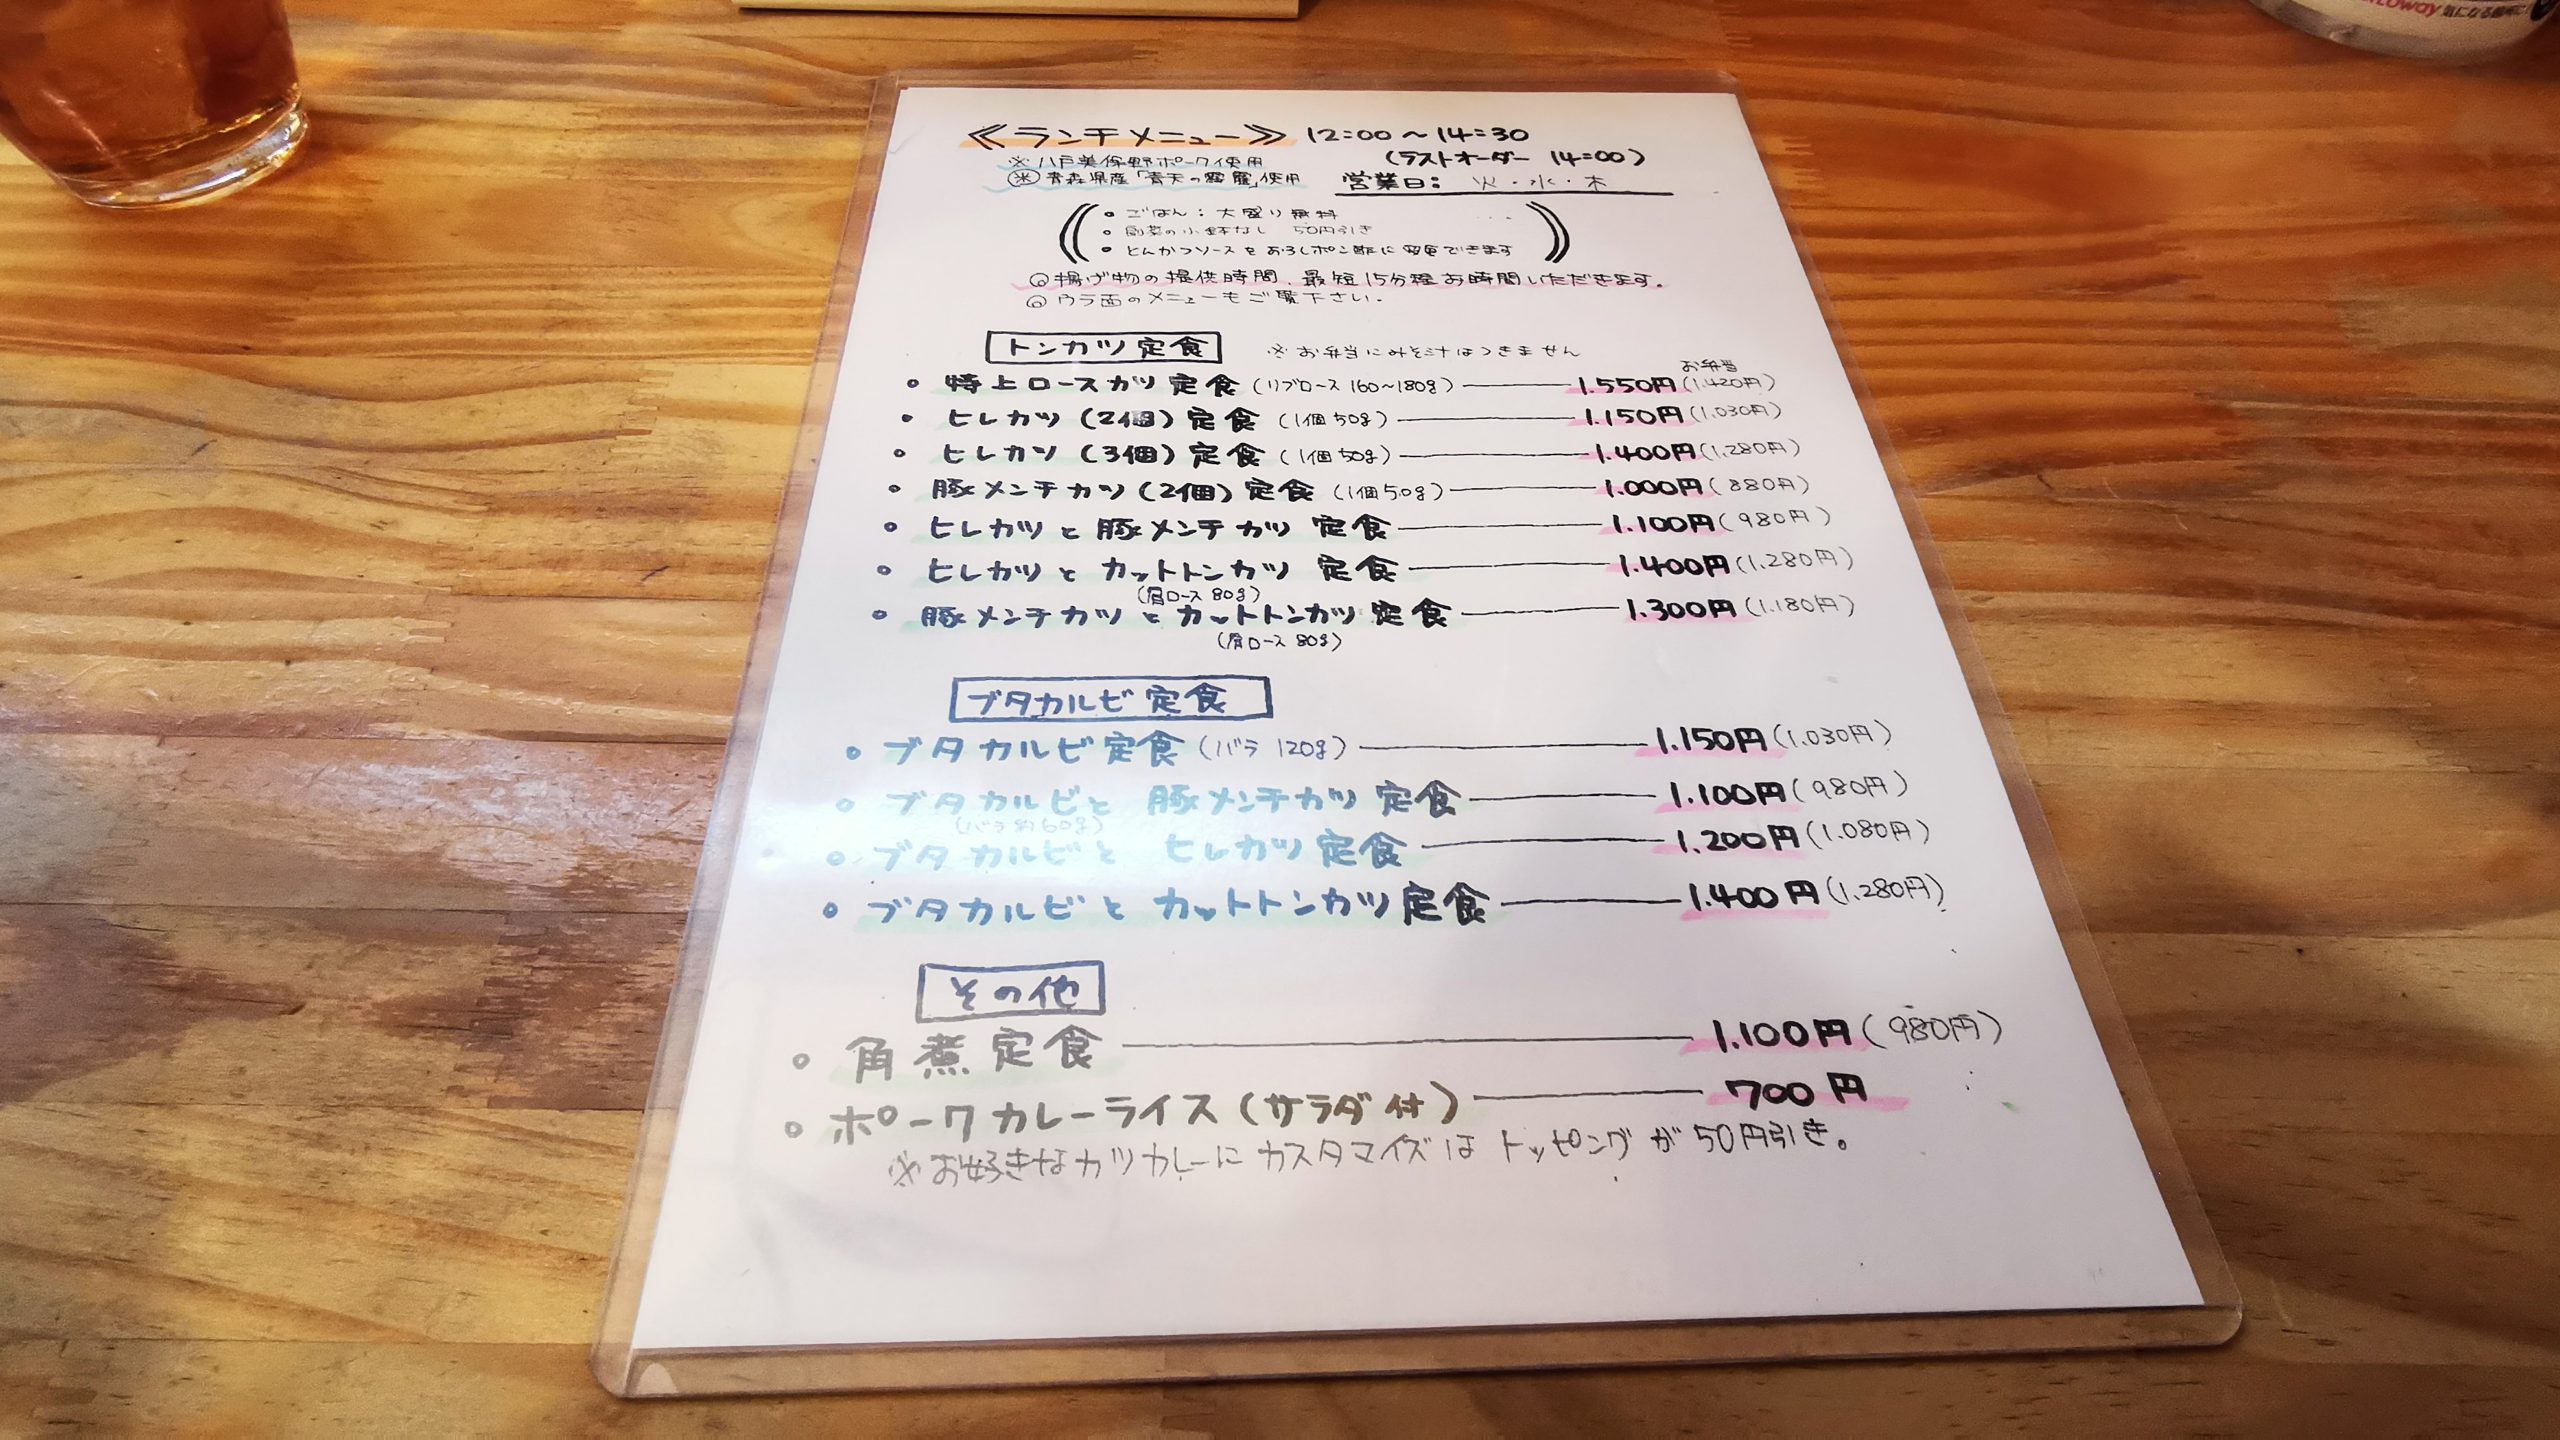 ≪ランチメニュー≫ 12:00～14:30
(ラストオーダー 14:00)
※八戸美保野ポーク使用
㊍青森県産「青天の霹靂」使用
営業日: 火・水・木
• ごはん:大盛り無料
• 副菜の小鉢なし 50円引き
• とんかつソースをおろしポン酢に変更できます
◎揚げ物の提供時間、最短15分程お時間いただきます。
◎ウラ面のメニューもご覧下さい。
トンカツ定食 ※お弁当にみそ汁はつきません
お弁当
• 特上ロースカツ定食(リブロース 160～180g) 1.550円(1.420円)
• ヒレカツ(2個)定食(1個50g) 1.150円(1.030円)
• ヒレカツ(3個)定食(1個50g) 1.400円(1.280円)
• 豚メンチカツ(2個)定食(1個50g) 1.000円(880円)
• ヒレカツと豚メンチカツ定食 1.100円(980円)
• ヒレカツとカットトンカツ定食 1.400円(1.280円)
(肩ロース 80g)
• 豚メンチカツとカットトンカツ定食 1.300円(1.180円)
(肩ロース 80g)
ブタカルビ定食
• ブタカルビ定食(バラ 120g) 1.150円(1.030円)
• ブタカルビと豚メンチカツ定食 1.100円(980円)
(バラ約60g)
• ブタカルビとヒレカツ定食 1.200円(1.080円)
• ブタカルビとカットトンカツ定食 1.400円(1.280円)
その他
• 角煮定食 1.100円(980円)
• ポークカレーライス(サラダ付) 700円
※お好きなカツカレーにカスタマイズはトッピングが50円引き。